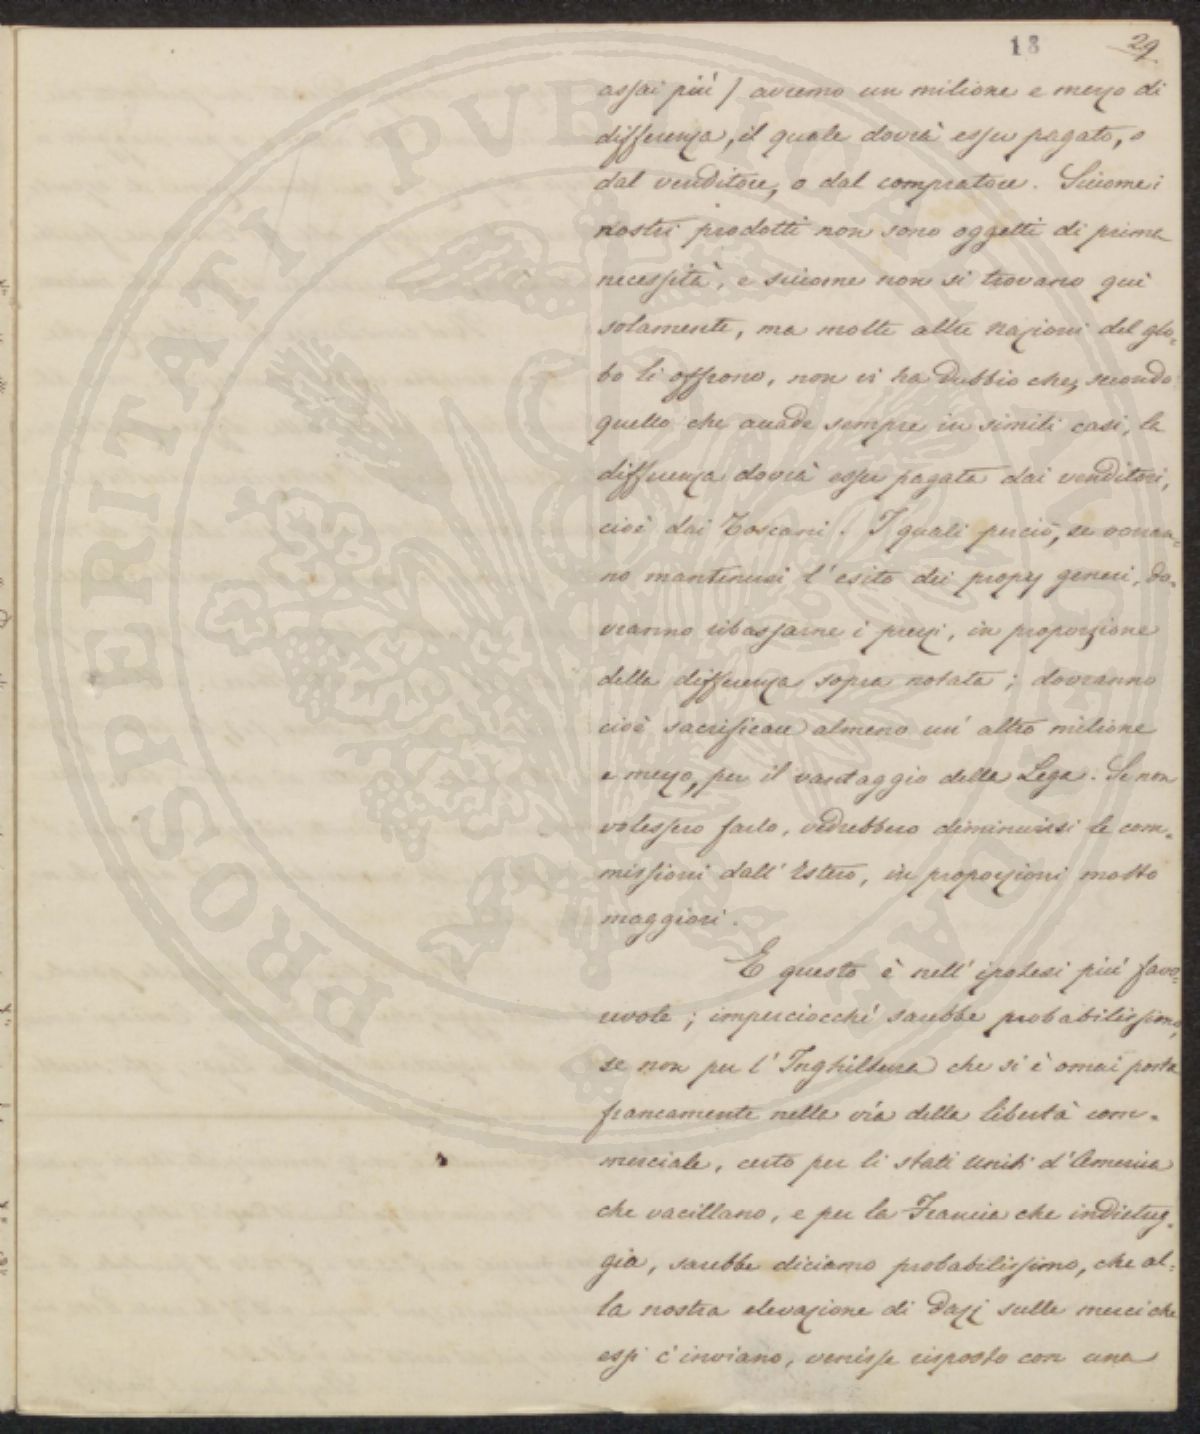 18 29.
assai più) avremo un milione e mezzo di
differenza, il quale dovrà esser pagato, o
dal venditore, o dal compratore. Siccome i
nostri prodotti non sono oggetti di prima
necessità, e siccome non si trovano quì
solamente, ma molte altre nazioni del glo=
bo li offrono, non vi ha dubbio che, secondo
quello che accade sempre in simili casi, la
differenza dovrà esser pagata dai venditori,
cioè dai Toscani. I quali perciò, se vorran=
no mantenersi l'esito dei proprj generi, do=
vranno ribassarne i prezzi, in proporzione
della differenza sopra notata; dovranno
cioè sacrificare almeno un' altro milione
e mezzo, per il vantaggio della Lega. Se non
volessero farlo, vedrebbero diminuirsi le com=
missioni dall' Estero, in proporzioni molto
maggiori.
E questo è nell' ipotesi più favo=
revole; imperciocchè sarebbe probabilissimo,
se non per l' Inghilterra che si è omai posta
francamente nella via della libertà com=
merciale, certo per li stati Uniti d'America
che vacillano, e per la Francia che indietreg=
gia, sarebbe diciamo probabilissimo, che al=
la nostra elevazione di Dazj sulle merci che
essi c'inviano, venisse risposto con una
PROSPERITATI PVBLICAE